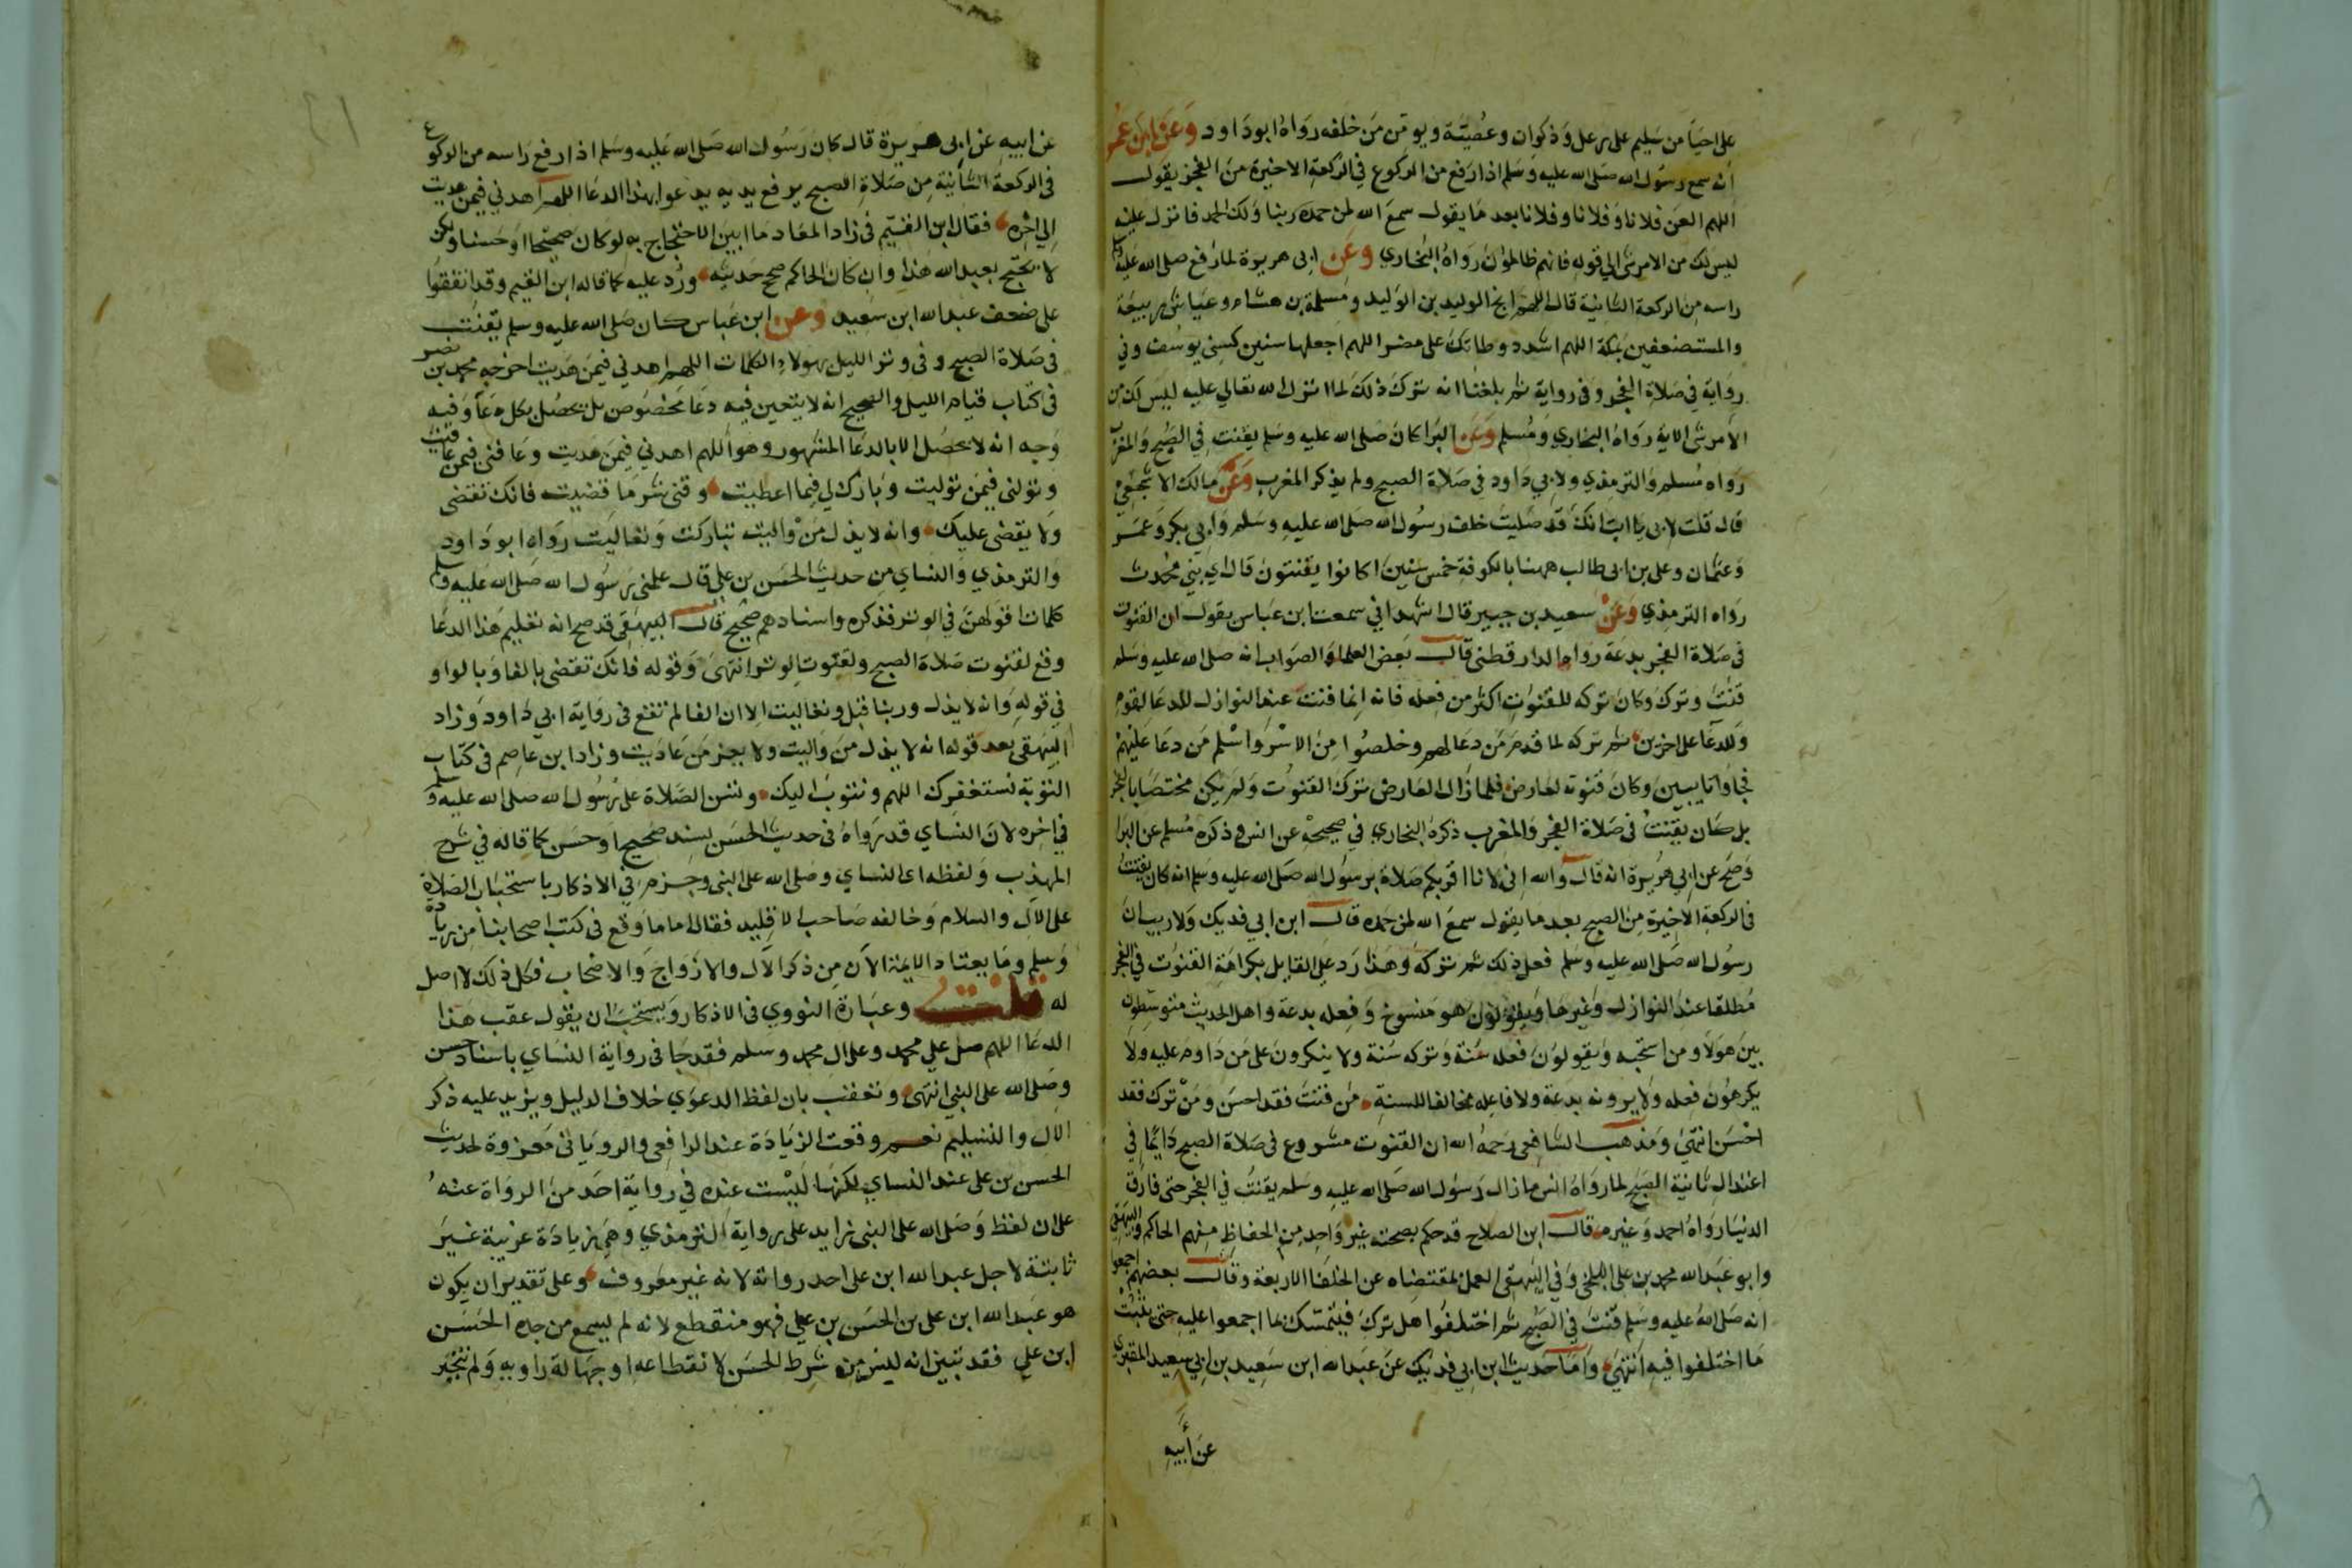 على احيا من سليم على رعل وذكوان وعصية ويومن من خلفه رواه ابو داود وعن ابن عمر
انه سمع رسول الله صلى الله عليه وسلم اذا رفع من الركوع في الركعة الاخيرة من الفجر يقول
اللهم العن فلانا وفلانا وفلانا بعد ما يقول سمع الله لمن حمده ربنا ولك الحمد فانزل عليه
ليس لك من الامر شئ الي قوله فانهم ظالمون رواه البخاري وعن ابي هريرة لما رفع صلى الله عليه وسلم
راسه من الركعة الثانية قال اللهم انج الوليد بن الوليد ومسلمة بن هشام وعياش بن ربيعة
والمستضعفين بمكة اللهم اشدد وطاتك على مضر اللهم اجعلها سنين كسني يوسف وفي
رواية في صلاة الفجر وفي رواية ثم بلغنا انه ترك ذلك لما انزل الله تعالي عليه ليس لك من
الامر شئ الاية رواه البخاري ومسلم وعن البرا كان صلى الله عليه وسلم يقنت في الصبح والمغرب
رواه مسلم والترمذي ولابي داود في صلاة الصبح ولم يذكر المغرب وعن مالك الاشجعي
قال قلت لابي يا ابت انك قد صليت خلف رسول الله صلى الله عليه وسلم وابي بكر وعمر
وعثمان وعلي بن ابي طالب ههنا بالكوفة خمس سنين اكانوا يقنتون قال اي بني محدث
رواه الترمذي وعن سعيد بن جبير قال اشهد اني سمعت ابن عباس يقول ان القنوت
في صلاة الفجر بدعة رواه الدارقطني قال بعض العلما والصواب انه صلى الله عليه وسلم
قنت وترك وكان تركه للقنوت اكثر من فعله فانه انما قنت عند النوازل للدعا لقوم
وللدعا على اخرين ثم تركه لما قدم من دعا لهم وخلصوا من الاسر واسلم من دعا عليهم
فجاوا تايبين وكان قنوته لعارض فلما زال العارض ترك القنوت ولم يكن مختصا بالفجر
بل كان يقنت في صلاة الفجر والمغرب ذكره البخاري في صحيحه عن انس وذكره مسلم عن البرا
وصح عن ابي هريرة انه قال والله اني لانا اقربكم صلاة برسول الله صلى الله عليه وسلم انه كان يقنت
في الركعة الاخيرة من الصبح بعد ما يقول سمع الله لمن حمده قال ابن ابي فديك ولا ريب ان
رسول الله صلى الله عليه وسلم فعل ذلك ثم تركه وهذا رد على القايل بكراهة القنوت في الفجر
مطلقا عند النوازل وغيرها ويقولون هو منسوخ وفعله بدعة واهل الحديث متوسطون
بين هولاء ومن استحبه ويقولون فعله سنة وتركه سنة ولا ينكرون على من داوم عليه ولا
يكرهون فعله ولا يرونه بدعة ولا فاعله مخالفا للسنة من قنت فقد احسن ومن ترك فقد
احسن انتهى ومذهب الشافعي رحمه الله ان القنوت مشروع في صلاة الصبح دايما في
اعتدال ثانية الصبح لما رواه انس ما زال رسول الله صلى الله عليه وسلم يقنت في الفجر حتى فارق
الدنيا رواه احمد وغيره قال ابن الصلاح قد حكم بصحته غير واحد من الحفاظ منهم الحاكم والبيهقي
وابو عبد الله محمد بن علي البلخي وفي البيهقي العمل بمقتضاه عن الخلفا الاربعة وقال بعضهم اجمعوا
انه صلى الله عليه وسلم قنت في الصبح ثم اختلفوا هل ترك فيتمسك بما اجمعوا عليه حتى يثبت
ما اختلفوا فيه انتهى واما حديث ابن ابي فديك عن عبد الله ابن سعيد بن ابي سعيد المقبري
عن أبيه
عن ابيه عن ابي هريرة قال كان رسول الله صلى الله عليه وسلم اذا رفع راسه من الركوع
في الركعة الثانية من صلاة الصبح يرفع يديه يدعو بهذا الدعا اللهم اهدني فيمن هديت
الي اخره فقال ابن القيم في زاد المعاد ما ابين الاحتجاج به لو كان صحيحا او حسنا ولكن
لا يحتج بعبد الله هذا وان كان الحاكم صحح حديثه ورد عليه كما قاله ابن القيم وقد اتفقوا
على ضعف عبد الله ابن سعيد وعن ابن عباس كان صلى الله عليه وسلم يقنت
في صلاة الصبح وفي وتر الليل بهولاء الكلمات اللهم اهدني فيمن هديت اخرجه محمد بن نصر
في كتاب قيام الليل والصحيح انه لا يتعين فيه دعا مخصوص بل يحصل بكل دعا وفيه
وجه انه لا يحصل الا بالدعا المشهور وهو اللهم اهدني فيمن هديت وعافني فيمن عافيت
وتولني فيمن توليت وبارك لي فيما اعطيت وقني شر ما قضيت فانك تقضي
ولا يقضى عليك وانه لا يذل من واليت تباركت وتعاليت رواه ابو داود
والترمذي والنساي من حديث الحسن بن علي قال علمني رسول الله صلى الله عليه وسلم
كلمات اقولهن في الوتر فذكره واسنادهم صحيح قال البيهقي قد صح انه تعليم هذا الدعا
وقع لقنوت صلاة الصبح ولقنوت الوتر انتهى وقوله فانك تقضي بالفا وبالواو
في قوله وانه لا يذل وربنا قبل وتعاليت الا ان الفا لم تقع في رواية ابي داود وزاد
البيهقي بعد قوله انه لا يذل من واليت ولا يعز من عاديت وزاد ابن عاصم في كتاب
التوبة نستغفرك اللهم ونتوب اليك وتسن الصلاة على رسول الله صلى الله عليه وسلم
في اخره لان النساي قد رواه في حديث الحسن بسند صحيح او حسن كما قاله في شرح
المهذب ولفظه اي النساي وصلى الله على النبي وجزم في الاذكار باستحباب الصلاة
على الآل والسلام وخالفه صاحب الاقليد فقال اما ما وقع في كتب اصحابنا من زيادة
وسلم وما يعتاد الايمة الآن من ذكر الآل والازواج والاصحاب فكل ذلك لا اصل
له قلت وعبارة النووي في الاذكار ويستحب ان يقول عقب هذا
الدعا اللهم صل على محمد وعلى ال محمد وسلم فقد جا في رواية النساي باسناد حسن
وصلى الله على النبي انتهى وتعقب بان لفظ الدعوي خلاف الدليل ويزيد عليه ذكر
الال والتسليم نعم وقعت الزيادة عند الرافعي والروياني معزوة لحديث
الحسن بن على عند النساي لكنها ليست عنده في رواية احد من الرواة عنه
على ان لفظ وصلى الله على النبي زايد على رواية الترمذي وهي زيادة غريبة غير
ثابتة لاجل عبد الله ابن على احد رواته لانه غير معروف وعلى تقدير ان يكون
هو عبد الله ابن على بن الحسن بن علي فهو منقطع لانه لم يسمع من جده الحسن
ابن علي فقد تبين انه ليس من شرط الحسن لانقطاعه او جهالة راويه ولم ينجبر